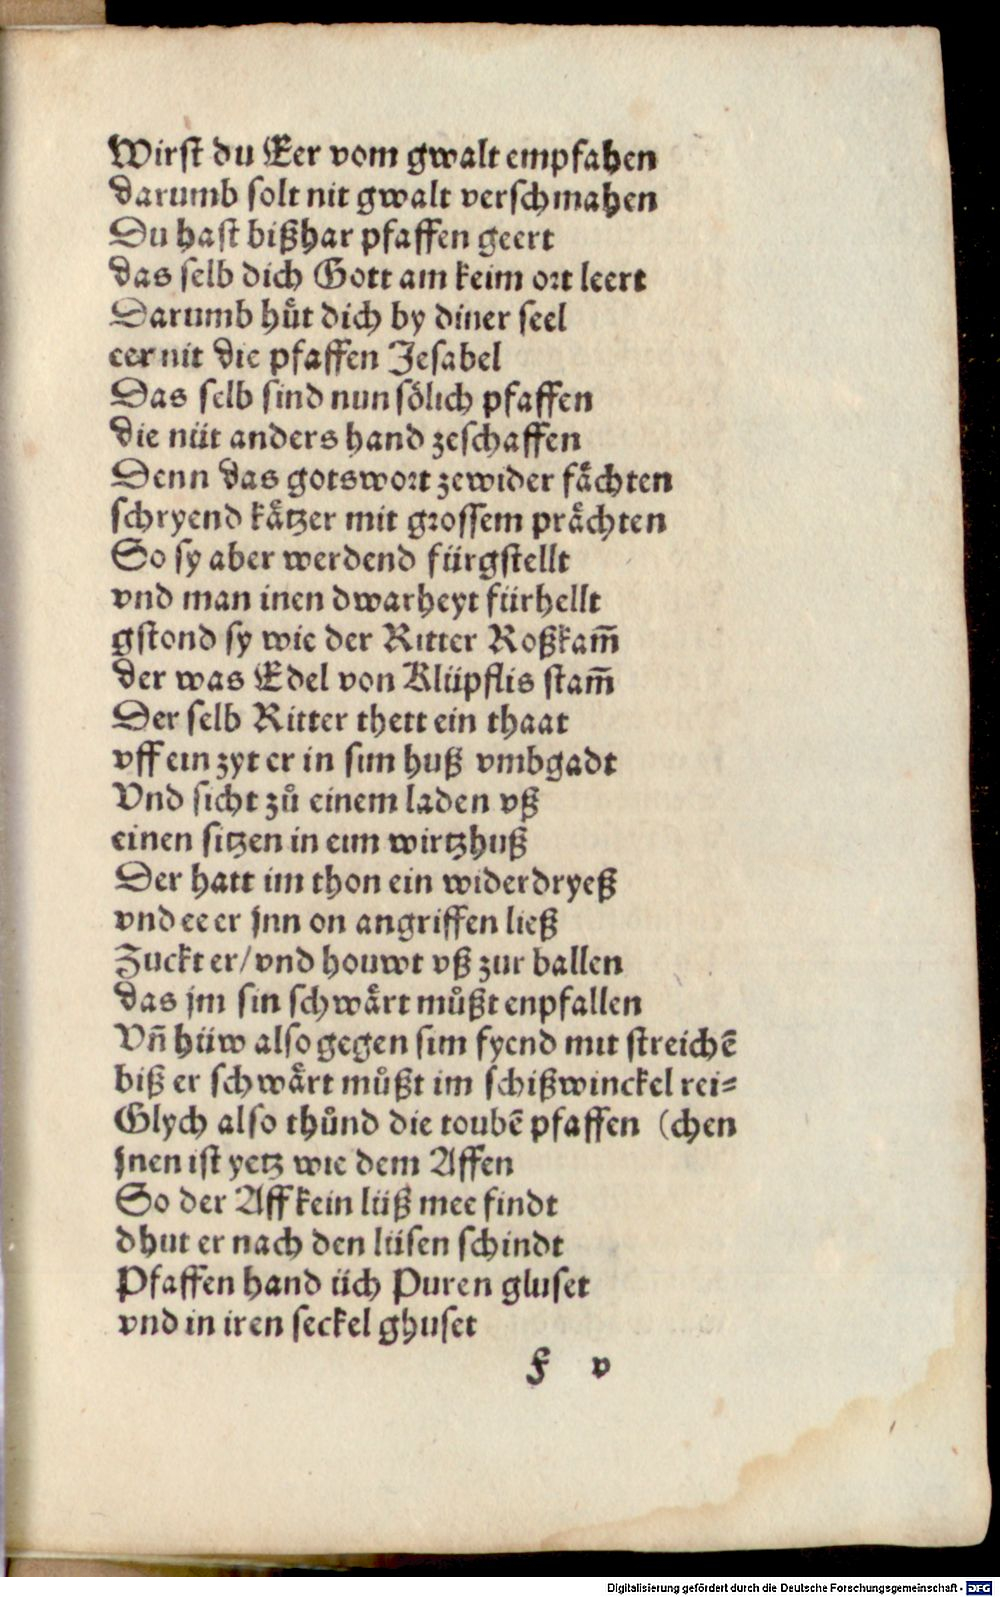 Wirst du Eer vom gwalt empfahen
darumb solt nit gwalt verschmahen
Du hast bißhar pfaffen geert
das selb dich Gott am keim ort leert
Darumb hůt dich by diner seel
eer nit die pfaffen Jesabel
Das selb sind nun soͤlich pfaffen
die nüt anders hand zeschaffen
Denn das gotswort zewider faͤchten
schryend kaͤtzer mit grossem praͤchten
So sy aber werdend fürgstellt
vnd man inen dwarheyt fürhellt
gstond sy wie der Ritter Roßkam̄
der was Edel von Klüpflis stam̄
Der selb Ritter thett ein thaat
vff ein zyt er in sim huß vmbgadt
Vnd sicht zů einem laden vß
einen sitzen in eim wirtzhuß
Der hatt im thon ein widerdryeß
vnd ee er jnn on angriffen ließ
Zuckt er/vnd houwt vß zur ballen
das jm sin schwaͤrt můßt enpfallen
Vn̄ hüw also gegen sim fyend mit streichē
biß er schwaͤrt můßt im schißwinckel rei⸗
Glych also thůnd die toubē pfaffen (chen
jnen ist yetz wie dem Affen
So der Aff kein lüß mee findt
dhut er nach den lüsen schindt
Pfaffen hand üch Puren gluset
vnd in iren seckel ghuset
F v
Digitalisierung gefördert durch die Deutsche Forschungsgemeinschaft - DFG